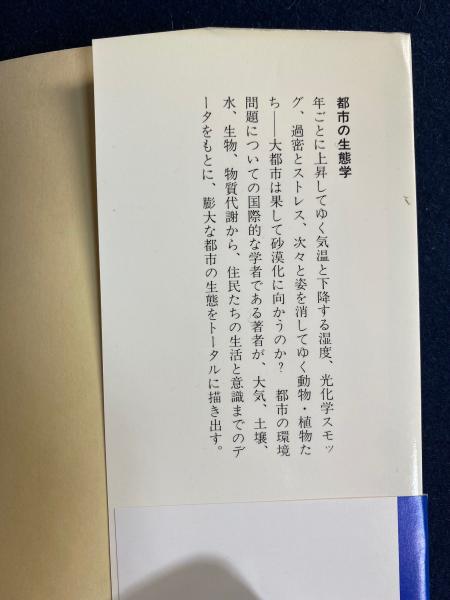 都市の生態学
年ごとに上昇してゆく気温と下降する湿度、光化学スモッ
グ、過密とストレス、次々と姿を消してゆく動物・植物た
ち――大都市は果して砂漠化に向かうのか? 都市の環境
問題についての国際的な学者である著者が、大気、土壌、
水、生物、物質代謝から、住民たちの生活と意識までのデ
ータをもとに、膨大な都市の生態をトータルに描き出す。